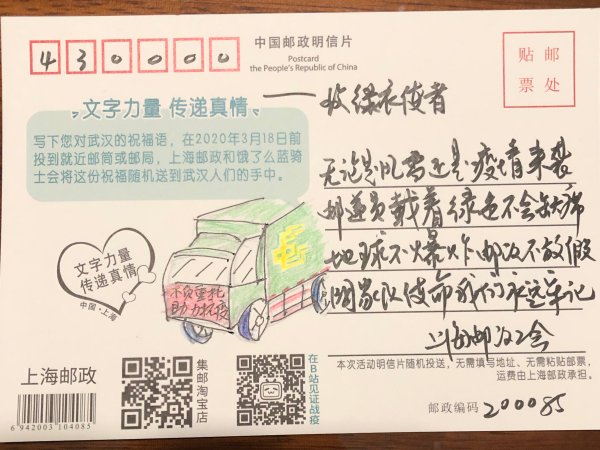 430000
中国邮政明信片
Postcard
the People's Republic of China
贴邮
票处
文字力量 传递真情
写下您对武汉的祝福语，在2020年3月18日前
投到就近邮筒或邮局，上海邮政和饿了么蓝骑
士会将这份祝福随机送到武汉人们的手中。
——致绿衣使者
无论是风雪还是疫情来袭
邮递员戴着绿色不会缺席
地球不爆炸邮政不放假
国家队使命我们永远牢记
上海邮政工会
文字力量
传递真情
中国·上海
不负重托
助力抗疫
上海邮政
6 942003 104085
集邮淘宝店
在B站见证战疫
本次活动明信片随机投送，无需填写地址、无需粘贴邮票，
运费由上海邮政承担。
邮政编码 200085